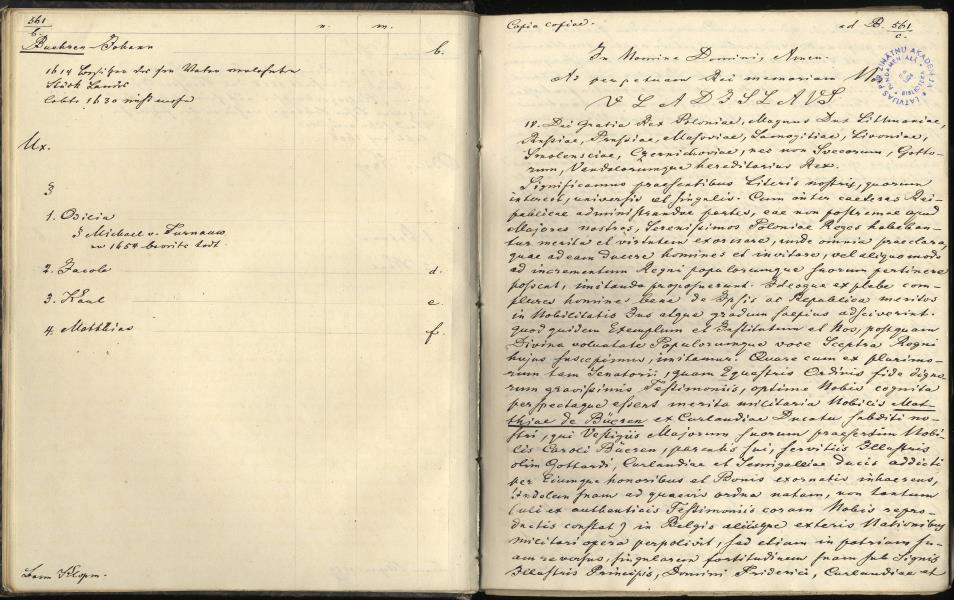 561
b.
v. m.
Buchsen Johann b.
1614
Stück Lands
lebte 1630
Ux.
3
1. Osilia
3 Michael v. Turnauw
1654 todt.
2. Jacob d.
3. Karl e.
4. Matthias f.
Bar. Klopm.
Copia copiae. ad B. 561
c.
In Nomine Domini, Amen.
Ad perpetuam Rei memoriam Nos
VLADISLAVS
IV. Dei Gratia Rex Poloniae, Magnus Dux Littuaniae,
Russiae, Prussiae, Masoviae, Samogitiae, Livoniae,
Smolensciae, Czernichoviae, nec non Svecorum, Gotto-
rum, Vandalorumque hereditarius Rex.
Significamus praesentibus Literis nostris, quorum
interest, universis et singulis. Cum inter caeteras Rei-
publicae administrandae partes, eae non postremae apud
Majores nostros, Serenissimos Poloniae Reges habeban-
tur merita et virtutem exornare, unde omnia praeclara,
quae ad eam ducere homines et invitare, vel aliquo modo
ad incrementum Regni populorumque suorum pertinere
possent, imitanda proposuerunt. Ideoque ex plebe com-
plures homines bene de Ipsis ac Republica meritos
in Nobilitatis Jus atque gradum saepius adsciverint.
quod quidem Exemplum et Institutum et Nos, postquam
Divina voluntate Populorumque voce Sceptra Regni
hujus suscepimus, imitamur. Quare cum ex plurimo-
rum tam Senatorii, quam Equestris Ordinis fide digno-
rum gravissimis Testimoniis, optime Nobis cognita
perspectaque essent merita militaria Nobilis Mat-
thiae de Bücsen ex Curlandiae Ducatu subditi no-
stri, qui Vestigiis Majorum suorum praesertim Nobi-
lis Caroli Bücsen, parentis sui, servitiis Illustris
olim Gottardi, Curlandiae et Semigalliae ducis addicti
per Eiumque honoribus et Bonis exornatis inhaerens,
indolem suam ad quaevis ardua natam, non tantum
(uti ex authenticis Testimoniis coram Nobis repro-
ductis constat) in Belgio aliisque exteris Nationibus
militari opera perpolivit, sed etiam in patriam su-
am reversus, singularem fortitudinem suam sub Signis
Illustris Principis, Domini Friderici, Curlandiae et